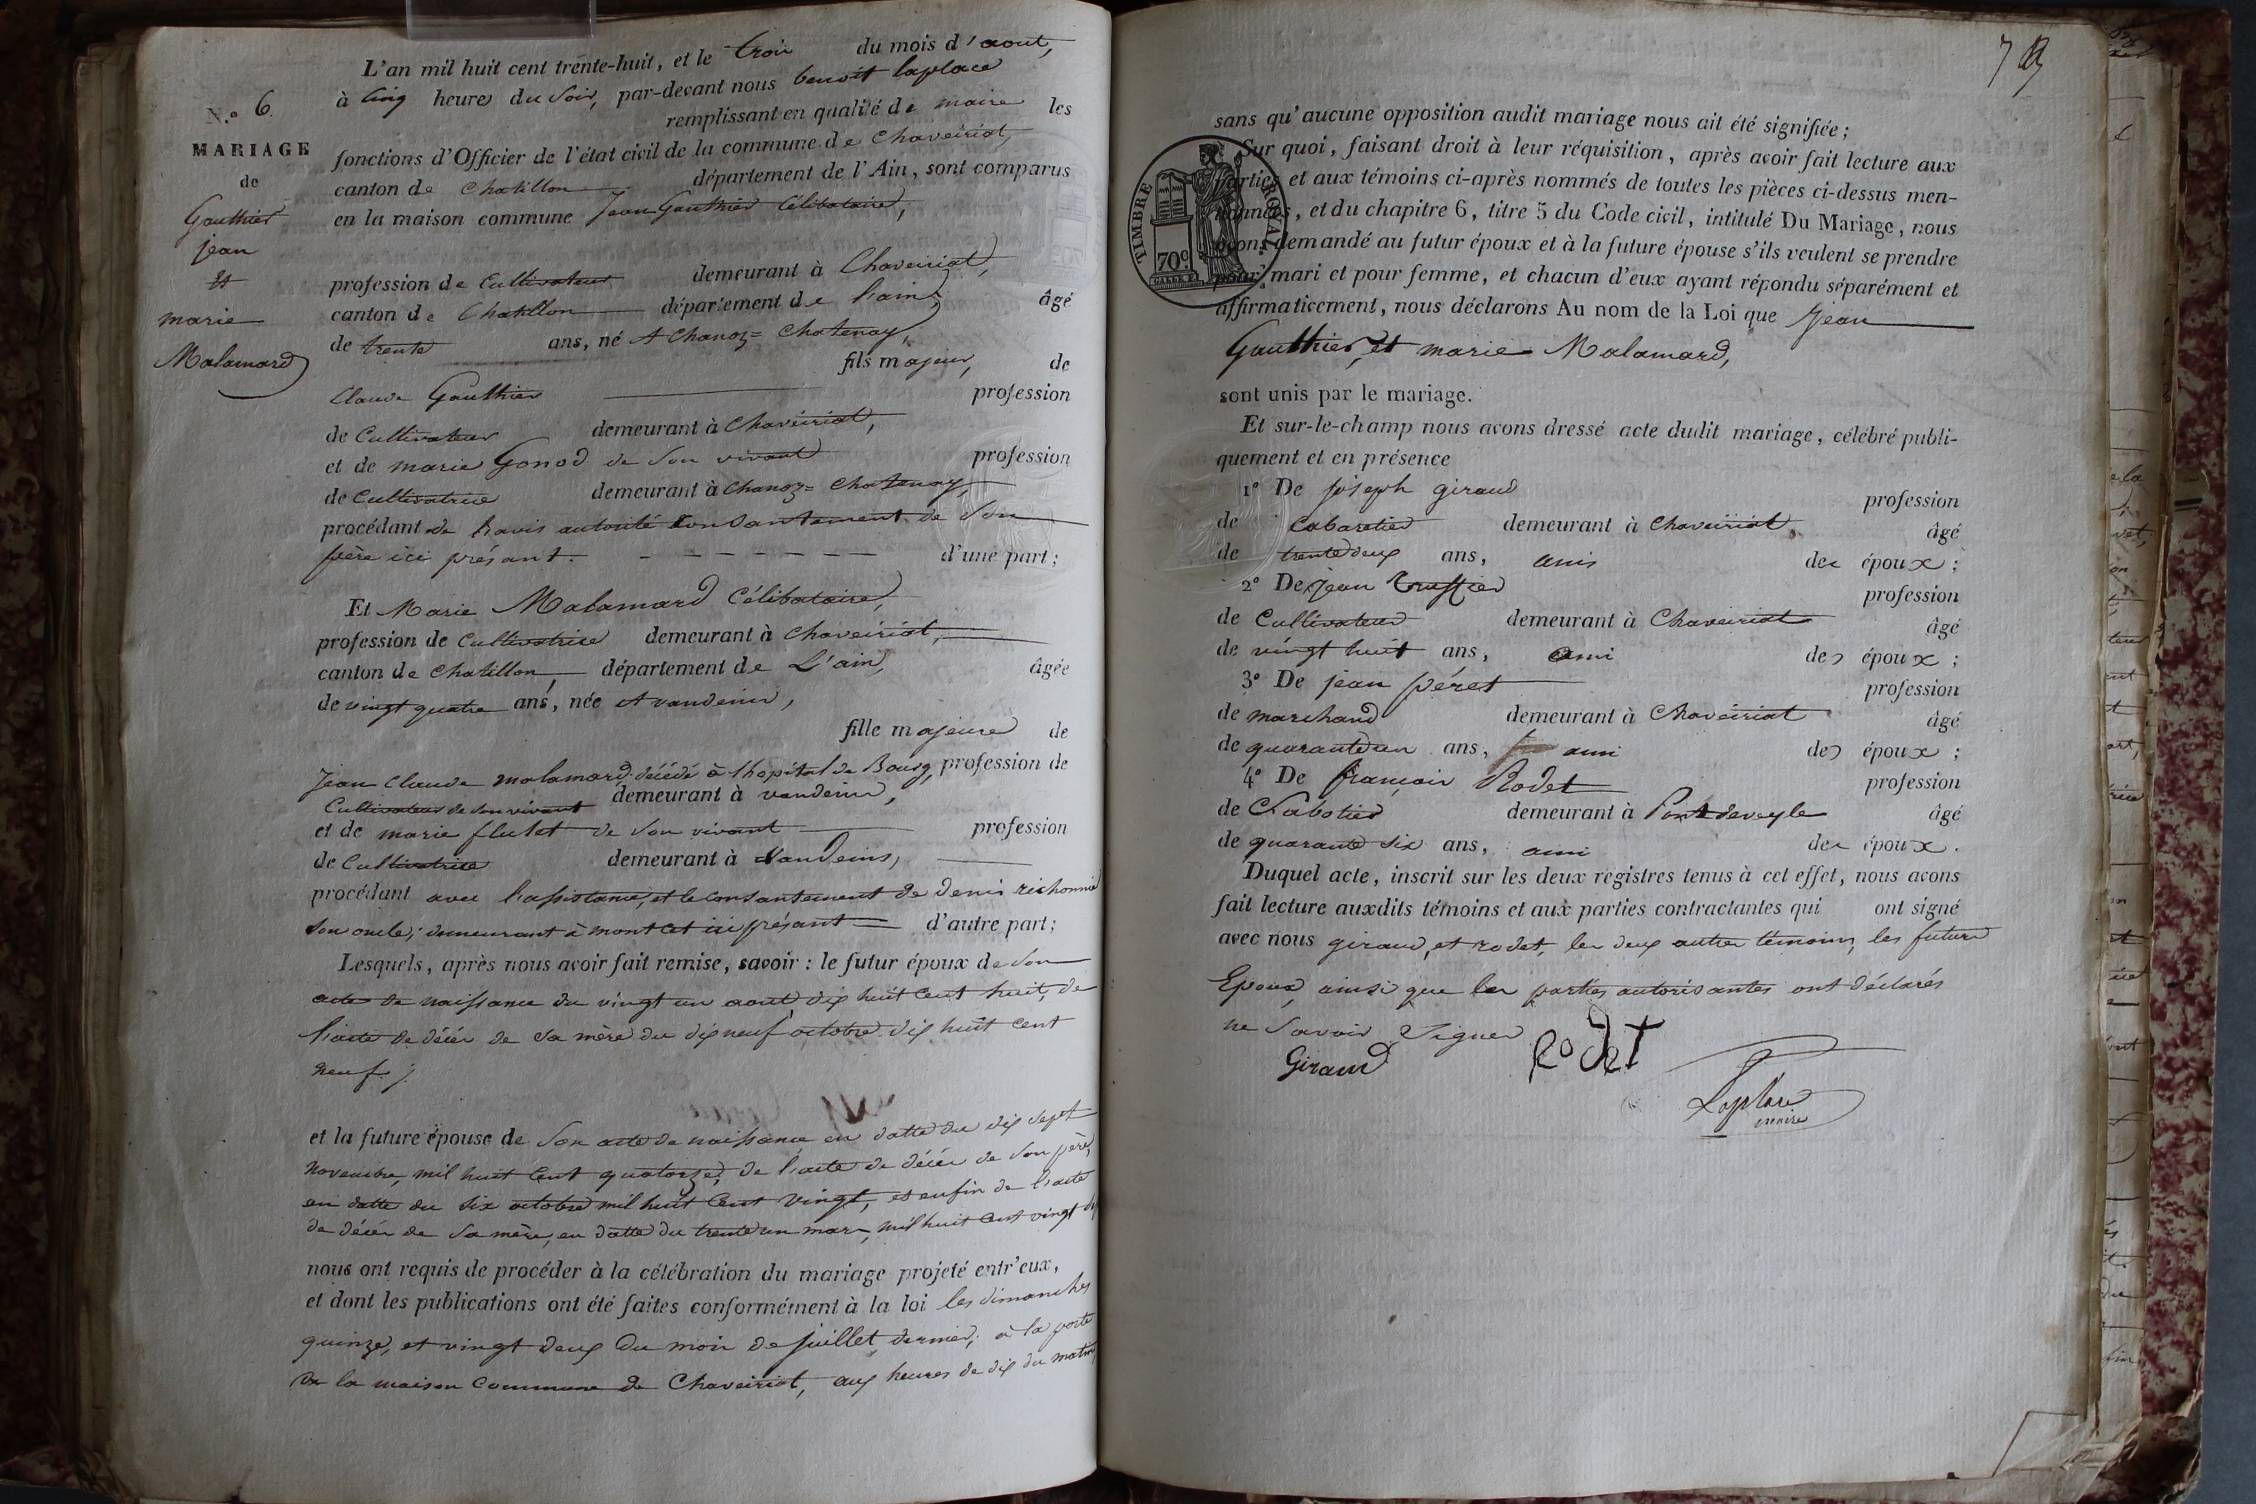 L'an mil huit cent trente-huit, et le trois du mois d'aout,
à cinq heures du soir, par-devant nous benoit laplace
remplissant en qualité de maire les
N.° 6.
MARIAGE
de
Gauthier
jean
et
marie
Malamard
fonctions d'Officier de l'état civil de la commune de Chaveiriat,
canton de Chatillon département de l'Ain, sont comparus
en la maison commune Jean Gauthier Célibataire,
profession de Cultivateur demeurant à Chaveiriat,
canton de Chatillon département de l'ain, âgé
de trente ans, né A Chanoz=Chatenay,
fils majeur, de
Claude Gauthier profession
de Cultivateur demeurant à Chaveiriat,
et de marie Gonod de son vivant profession
de Cultivatrice demeurant à Chanoz=Chatenay,
procédant de l'avis autorité Consantement de son
père ici présant. - - - - - - - d'une part;
Et Marie Malamard Célibataire,
profession de Cultivatrice demeurant à Chaveiriat,
canton de Chatillon, département de L'ain, âgée
de vingt quatre ans, née A vandeins,
fille majeure de
Jean Claude malamard décédé à l'hopital de Bourg, profession de
Cultivateur de son vivant demeurant à vandeins,
et de marie flutet de son vivant profession
de Cultivatrice demeurant à Vandeins,
procédant avec l'assistance, et le consantement de denis richonnier
son oncle, demeurant à montcet ici présant d'autre part;
Lesquels, après nous avoir fait remise, savoir : le futur époux de son
acte de naissance du vingt un aout dix huit cent huit, de
l'acte de décés de sa mère du dix neuf octobre dix huit cent
neuf;
et la future épouse de son acte de naissance en datte du dix sept
novembre, mil huit cent quatorze, de l'acte de décés de son père,
en datte du six octobre mil huit cent vingt, et enfin de l'acte
de décés de sa mère, en datte du trente un mars, mil huit cent vingt
nous ont requis de procéder à la célébration du mariage projeté entr'eux,
et dont les publications ont été faites conformément à la loi les dimanches
quinze, et vingt deux du mois de juillet dernier; à la porte
de la maison Commune de Chaveiriat, aux heures de dix du matin
sans qu'aucune opposition audit mariage nous ait été signifiée;
Sur quoi, faisant droit à leur réquisition, après avoir fait lecture aux
parties et aux témoins ci-après nommés de toutes les pièces ci-dessus men-
tionnées, et du chapitre 6, titre 5 du Code civil, intitulé Du Mariage, nous
avons demandé au futur époux et à la future épouse s'ils veulent se prendre
pour mari et pour femme, et chacun d'eux ayant répondu séparément et
affirmativement, nous déclarons Au nom de la Loi que Jean
TIMBRE ROYAL.
70c.
Gauthier, et marie Malamard,
sont unis par le mariage.
Et sur-le-champ nous avons dressé acte dudit mariage, célébré publi-
quement et en présence
1° De joseph giraud profession
de Cabaretier demeurant à Chaveiriat, âgé
de trente deux ans, amis des époux;
2° De jean profession
de Cultivateur demeurant à Chaveiriat âgé
de vingt huit ans, ami des époux;
3° De jean péret profession
de marchand demeurant à Chaveiriat âgé
de quarante un ans, ami des époux;
4° De françois Rodet profession
de Sabotier demeurant à Pontdeveyle âgé
de quarante six ans, ami des époux.
Duquel acte, inscrit sur les deux registres tenus à cet effet, nous avons
fait lecture auxdits témoins et aux parties contractantes qui ont signé
avec nous giraud, et rodet, les deux autres témoins, les future
Epoux, ainsi que les parties autorisantes ont déclarés
ne savoir Signer
Giraud Rodet
Laplace
maire